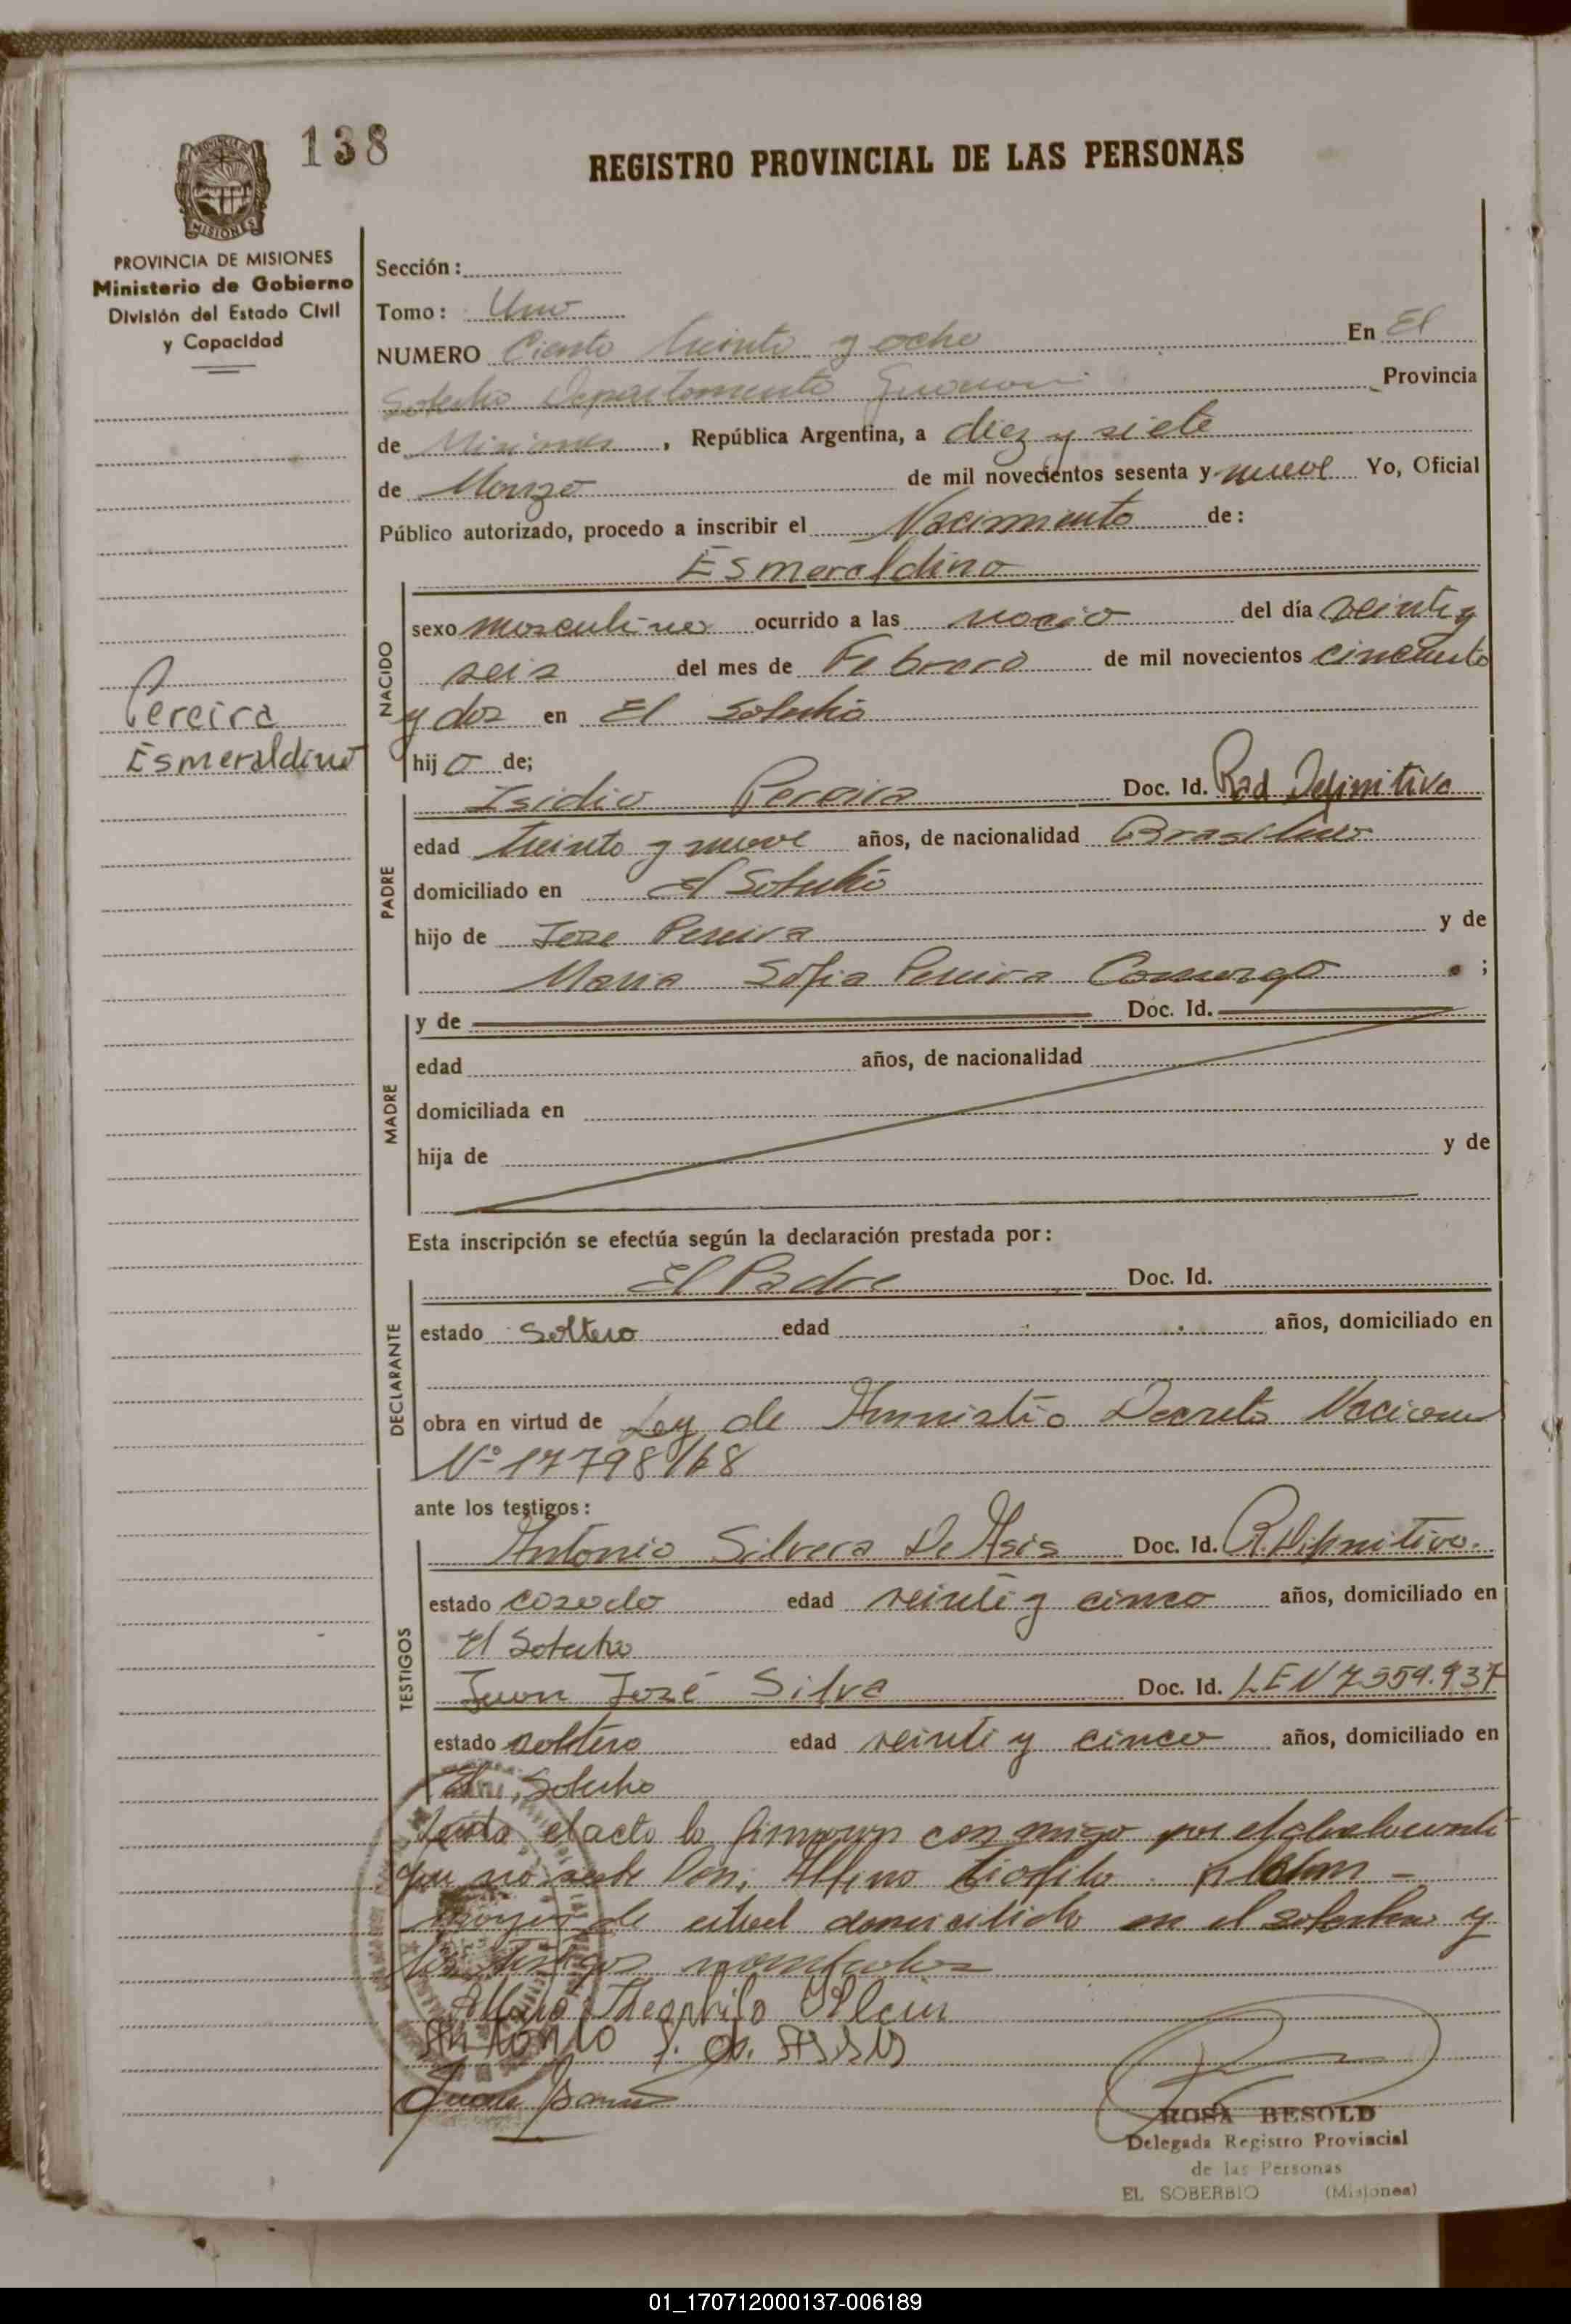 138
REGISTRO PROVINCIAL DE LAS PERSONAS
MISIONES
PROVINCIA DE MISIONES
Ministerio de Gobierno
División del Estado Civil
y Capacidad
Sección:
Tomo: Uno
NUMERO Ciento treinta y ocho En El
Departamento Guarani Provincia
de Misiones, República Argentina, a diez y siete
de Marzo de mil novecientos sesenta y nueve Yo, Oficial
Público autorizado, procedo a inscribir el Nacimiento de:
Esmeraldino
NACIDO
sexo masculino ocurrido a las del día veinte y
seis del mes de Febrero de mil novecientos cincuenta
y dos en El
hijo de;
Pereira
Esmeraldino
PADRE
Isidio Pereira Doc. Id. Rad Definitiva
edad treinta y nueve años, de nacionalidad
domiciliado en El
hijo de Jose Pereira y de
Maria Sofia Pereira Camargo ;
MADRE
y de Doc. Id.
edad años, de nacionalidad
domiciliada en
hija de y de
Esta inscripción se efectúa según la declaración prestada por:
DECLARANTE
El Padre Doc. Id.
estado Soltero edad años, domiciliado en
obra en virtud de Ley de Amnistia Decreto Nacional
Nº 17798/68
ante los testigos:
TESTIGOS
Antonio Silvera De Asis Doc. Id. R. Difinitiva.
estado casado edad veinte y cinco años, domiciliado en
El
Juan José Silva Doc. Id. L E N 7.559.937
estado soltero edad veinte y cinco años, domiciliado en
El
el acto lo firmaron con migo por el
que no sabe Don,
de edad domiciliado en el y
los testigos nombrados
Theophilo
Antonio S. de ASSIS
Juan
ROSA BESOLD
Delegada Registro Provincial
de las Personas
EL SOBERBIO (Misiones)
01_170712000137-006189